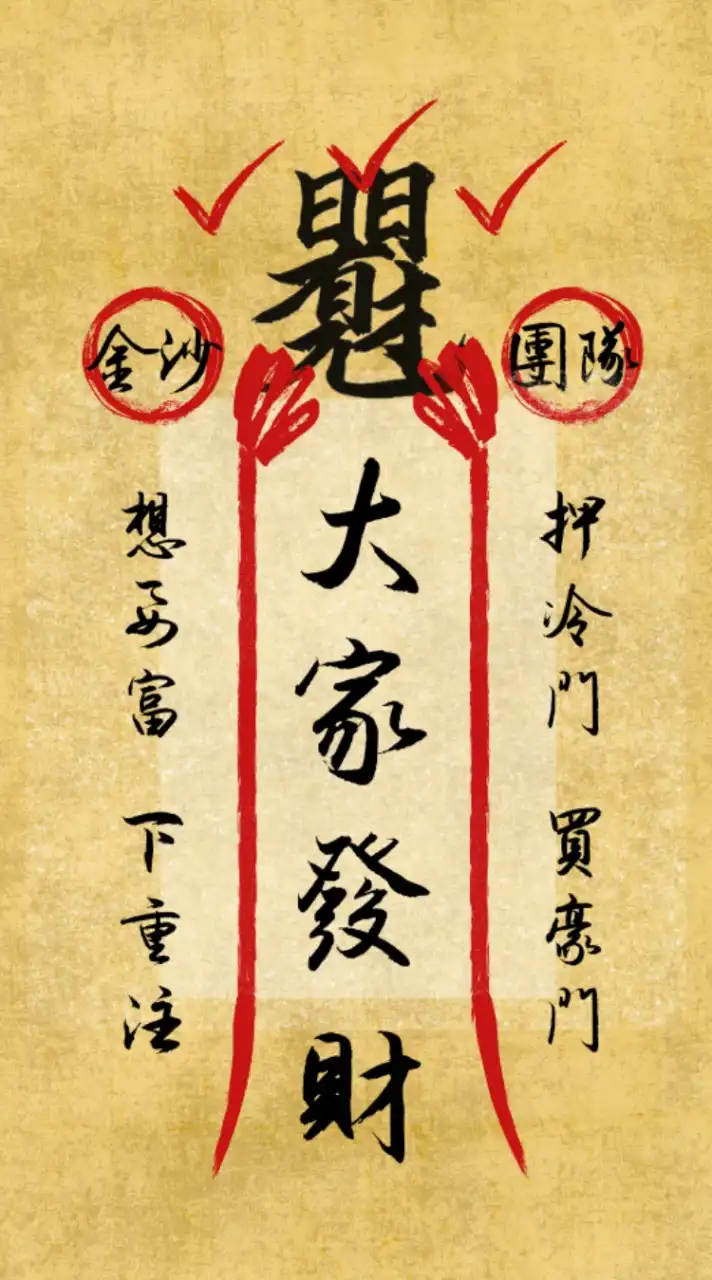 金沙
團隊
押冷門 買豪門
大家發財
想要富 下重注